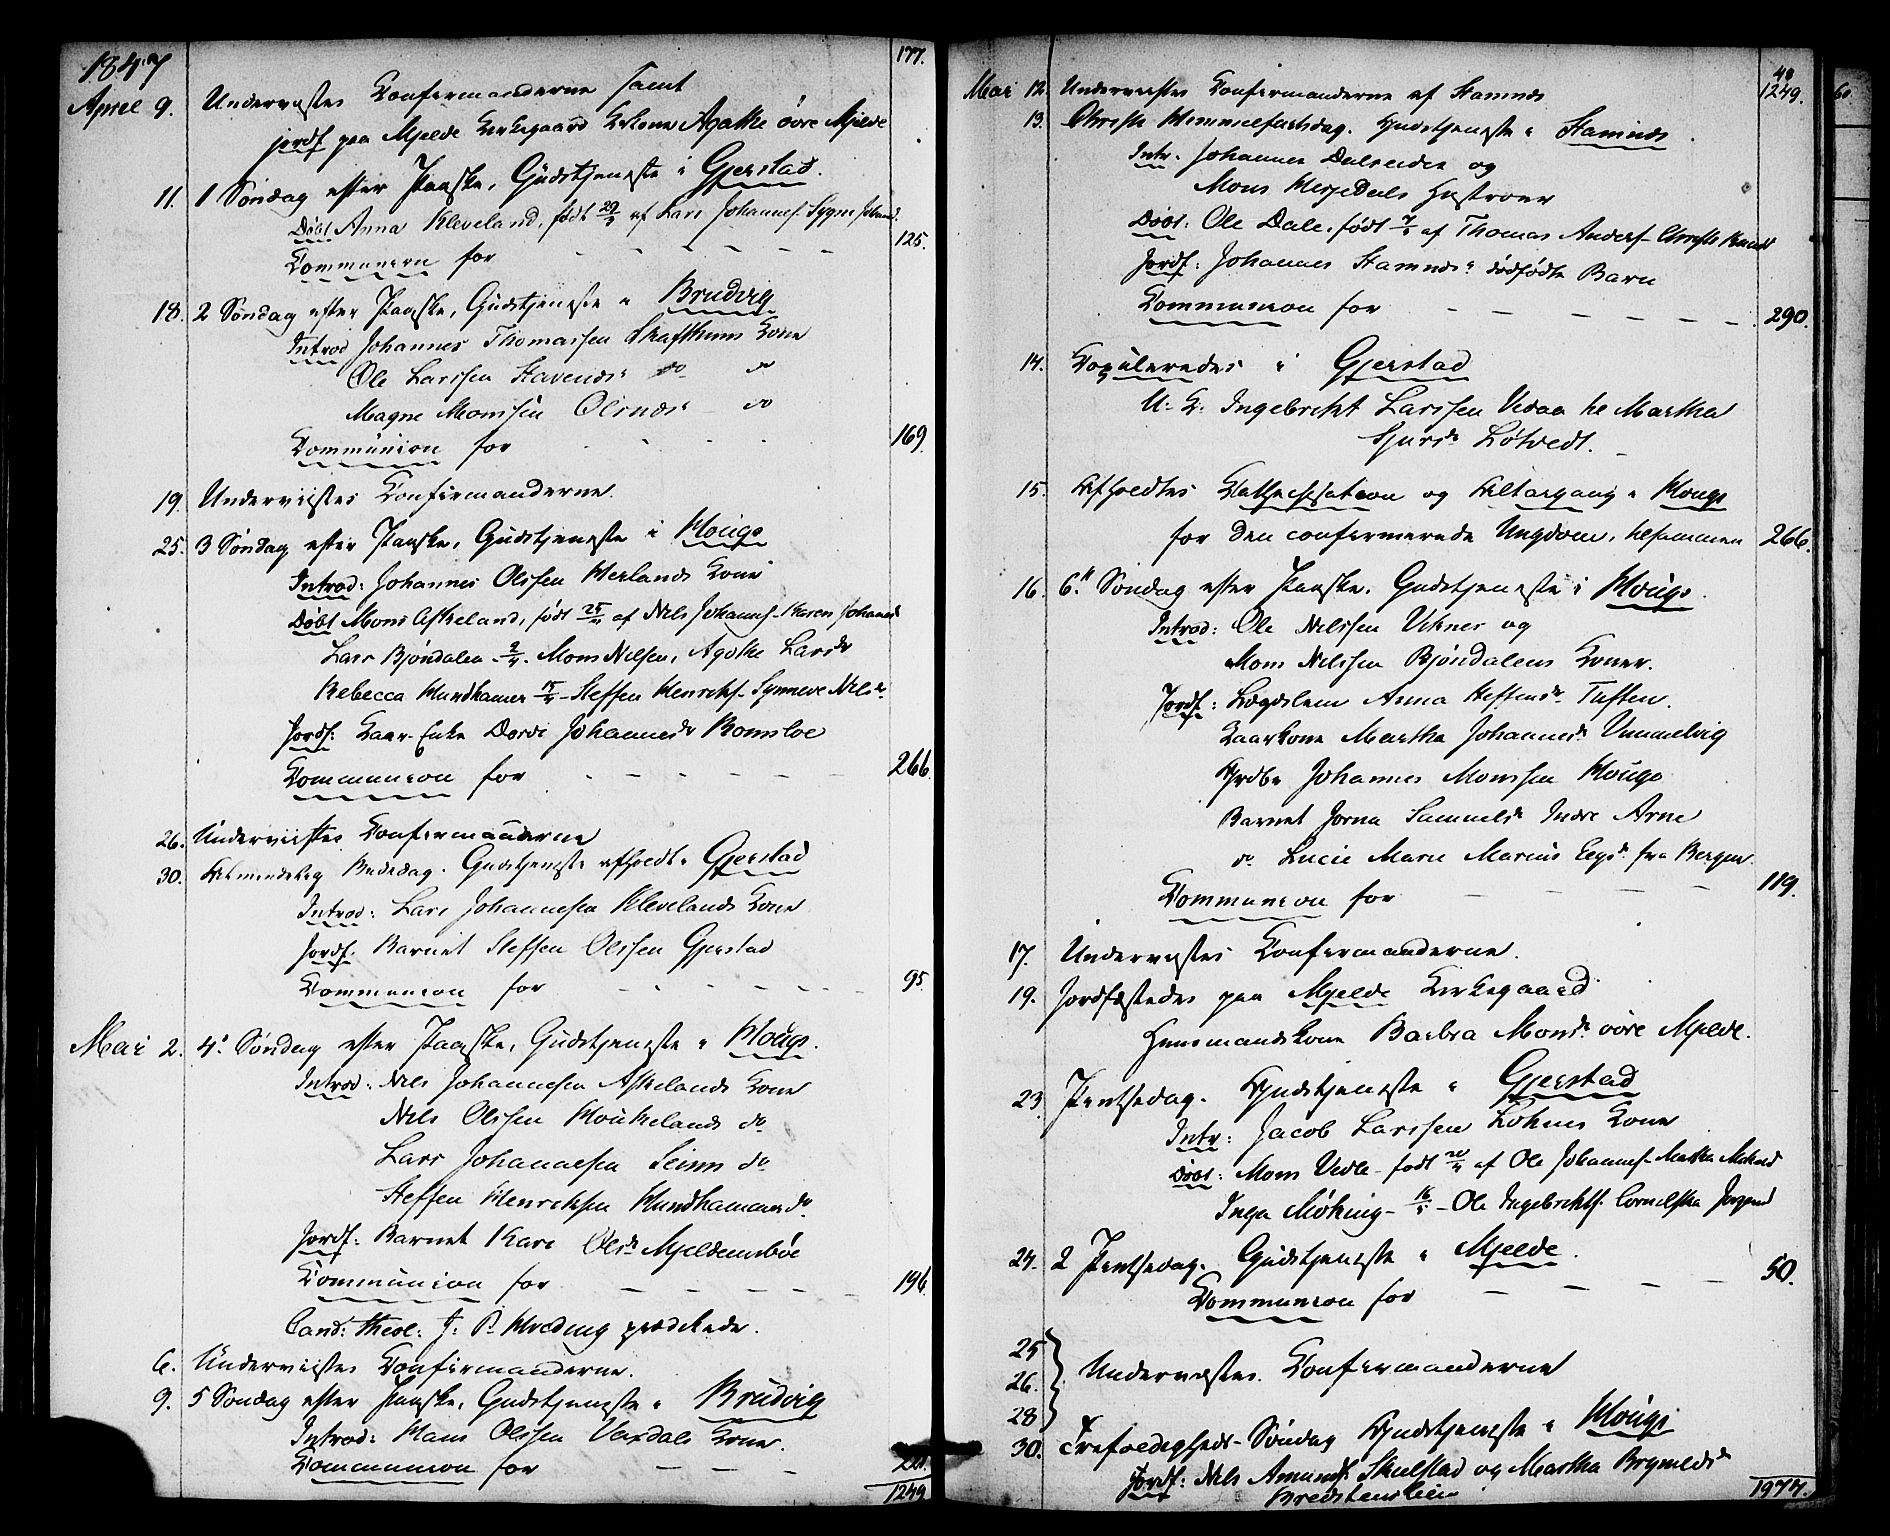 1847
177.
April 9. Underviistes Confirmanderne samt
jordf paa Mjelde Kirkegaard Konen Agathe øvre Mjelde
11. 1 Søndag efter Paaske, Gudstjeneste i Gjerstad.
Døbt Anna Kleveland, født 29/3 af Lars Johannes. Sygne Johannd.
Communion for - - - - - 125.
18. 2 Søndag efter Paaske, Gudstjeneste i Brudvig
Introd Johannes Thomassen Skafthuns Kone
Ole Larssen Stavenæs do do
Magne Monssen Olsnæs do
Communion for - - - - 169.
19. Underviistes Confirmanderne.
25. 3 Søndag efter Paaske, Gudstjeneste i Hougs
Introd: Johannes Olssen Herlands Kone
Døbt Mons Askeland, født af Nils Johannes - Karen Johannd
Lars Bjøndalen - 2/4 - Mons Nilsen, Agathe Larsdr
Rebecca Hundhamer 15/4 - Steffen Henriks - Synneve Nilsdr
Jordf: Kaar-Enke Dorde Johannesdr Romsloe
Communion for - - - - - - 266.
26. Underviistes Confirmanderne
30. Almindelig Bededag. Gudstjeneste afholdt i Gjerstad
Introd: Lars Johannesen Klevelands Kone
Jordf. Barnet Steffen Olssen Gjerstad
Communion for - - - - - - 95.
Mai 2. 4. Søndag efter Paaske, Gudstjeneste i Hougs.
Introd: Nils Johannesen Askelands Kone
Nils Olssen Houkelands do
Lars Johannesen Seims do
Steffen Henriksen Hundhammer do
Jordf: Barnet Kari Olsdr Mjeldemsbøe
Communion for - - - - - 196.
Cand: theol: J: B. prædikede.
6. Underviistes Confirmanderne.
9. 5 Søndag efter Paaske, Gudstjeneste i Brudvig
Introd: Hans Olssen Vaxdals Kone.
Communion for - - - -
1249
48
1249.
Mai 12. Underviistes Confirmanderne af Stamnæs
13. Christi Himmelfartsdag. Gudstjeneste i Stamnæs.
Intr. Johannes Dalseides og
Mons Hesjedals Hustruer
Døbt: Ole Dale, født af Thomas Anders - Christi
Jordf: Johannes Stamnæs' dødfødte Barn
Communion for - - - - - - 290.
14. Copuleredes i Gjerstad
U: K: Ingebrikt Larssen Vedaa og Martha
Sjursdr Løtvedt.
15. Afholdtes Cathechisation og Altergang i Hougs
for den confirmerede Ungdom, tilsammen 266.
16. 6te Søndag efter Paaske. Gudstjeneste i Hougs.
Introd: Ole Nilssen Viknes og
Mons Nilssen Bjøndalens Koner.
Jordf: Lægdslem Anna Steffensdr Tuften.
Kaarkone Martha Johannesdr Vemmelvig
Gdbr Johannes Monssen Hougs
Barnet Jorna Samuelsdr Indre Arne
do Lucie Marie Marius Eegsdr fra Bergen.
Communion for - - - 119.
17. Underviistes Confirmanderne.
19. Jordfæstedes paa Mjelde Kirkegaard
Huusmandskone Barbra Monsdr øvre Mjelde.
23. Pintsedag. Gudstjeneste i Gjerstad
Intr: Jacob Larssen Lohnes Kone
Døbt: Mons Vedle - født af Ole Johannes - Martha
Inga Møhing - 16/5 - Ole Ingebrikts. Corneliska
24. 2 Pintsedag. Gudstjeneste i Mjelde.
Communion for - - - - 50.
25
26. } Underviistes Confirmanderne
28
30. Trefoldigheds-Søndag Gudstjeneste i Hougs
Jordf: Nils Amunds. Skulstad og Martha Brynildsdr
Bredsteinslien
1977.